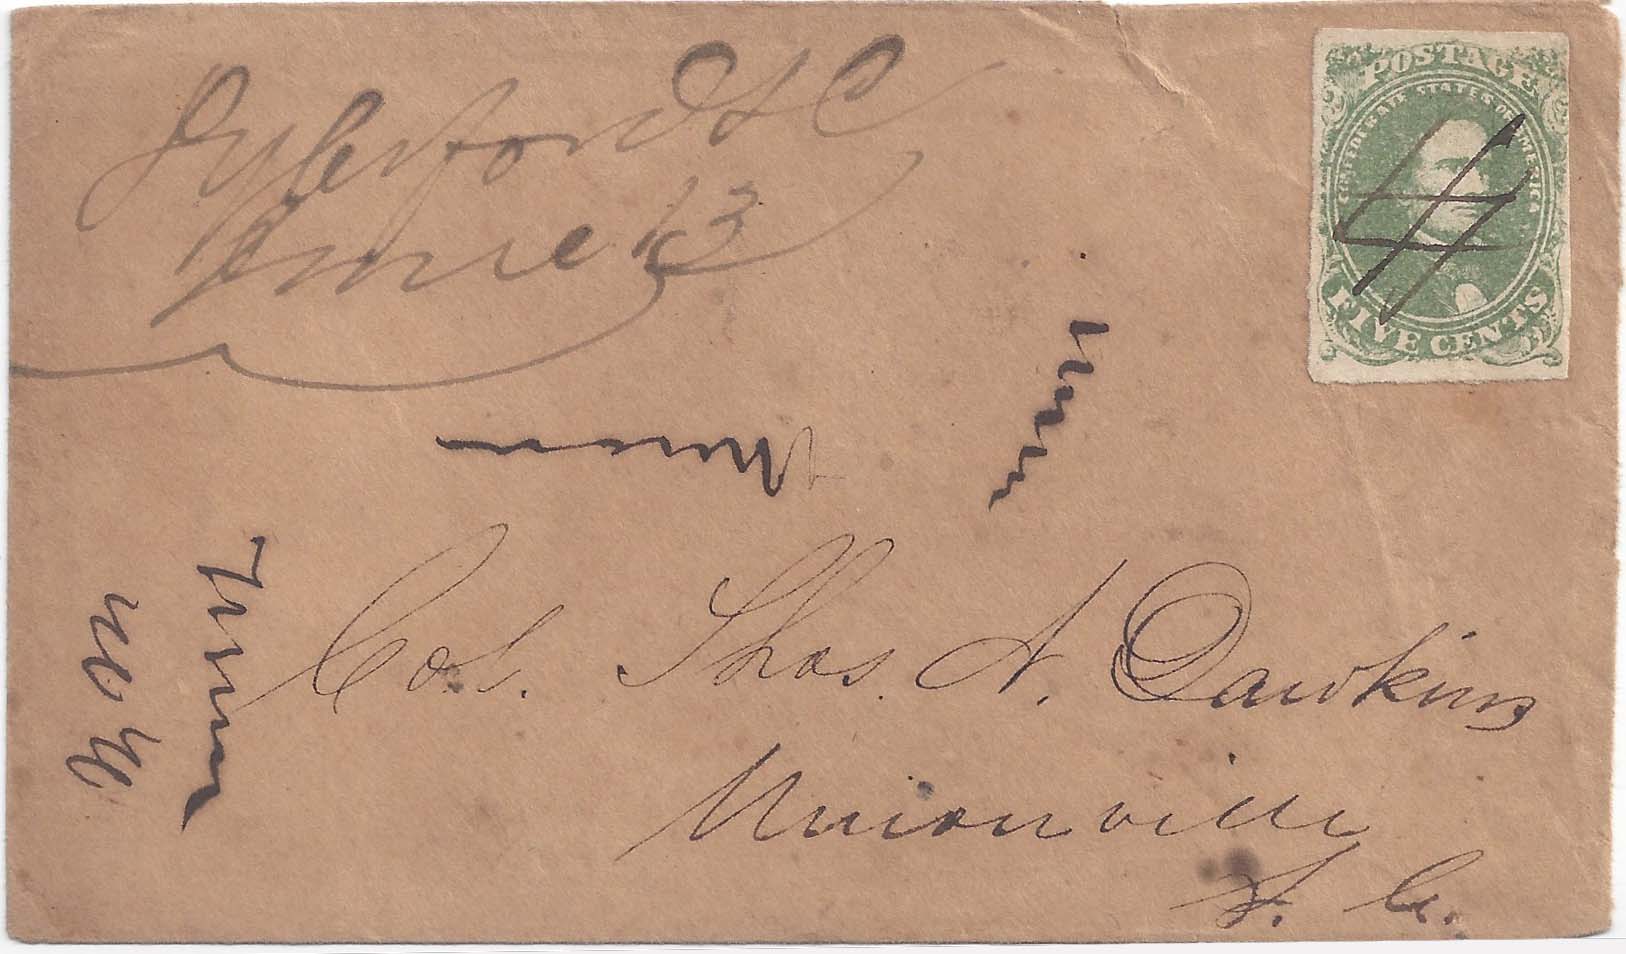 Jylerford S C
June 13
POSTAGE
CONFEDERATE STATES OF AMERICA
FIVE CENTS
Col. Thos. N. Dawkins
Unionville
S. C.